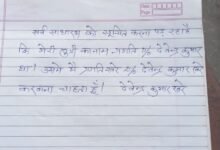 सर्व साधारण को सूचित करना पड़ रहा है
कि मेरी पुत्री का नाम देवेन्द्र कुमार
था। उसमें मैं देवेन्द्र कुमार खरे
करवाना चाहता हूँ। देवेन्द्र कुमार खरे